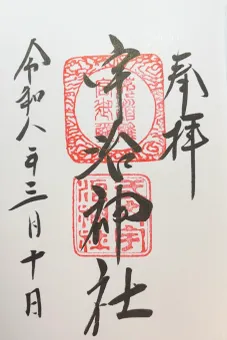 奉拝
宇治神社
令和八年三月十日